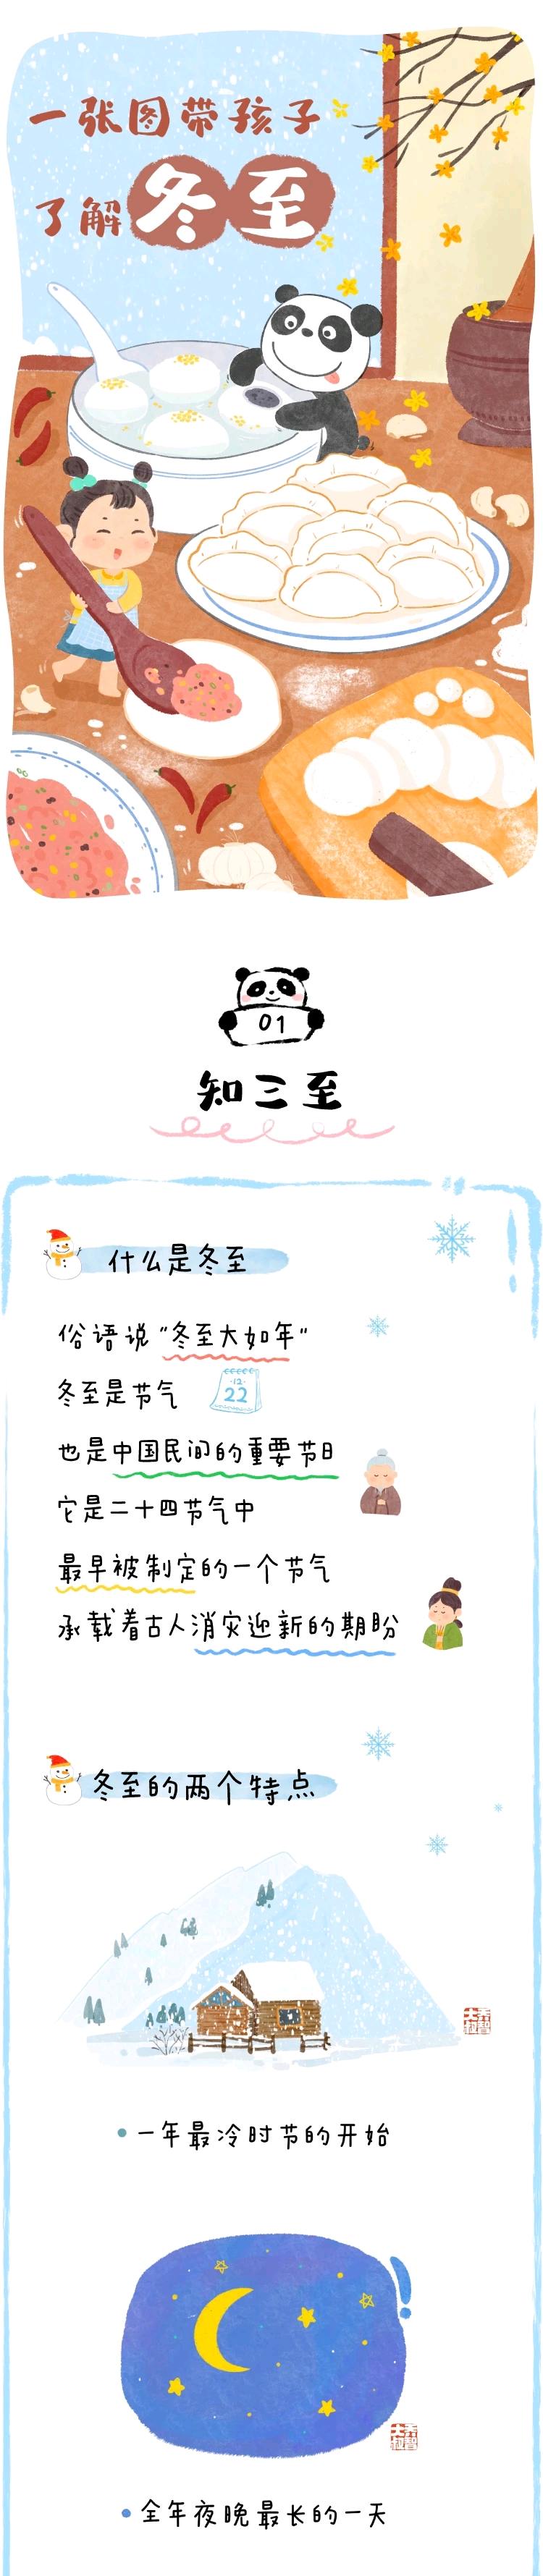 一张图带孩子
了解冬至
01
知三至
什么是冬至
俗语说“冬至大如年”
冬至是节气
·12·
22
也是中国民间的重要节日
它是二十四节气中
最早被制定的一个节气
承载着古人消灾迎新的期盼
冬至的两个特点
一年最冷时节的开始
全年夜晚最长的一天